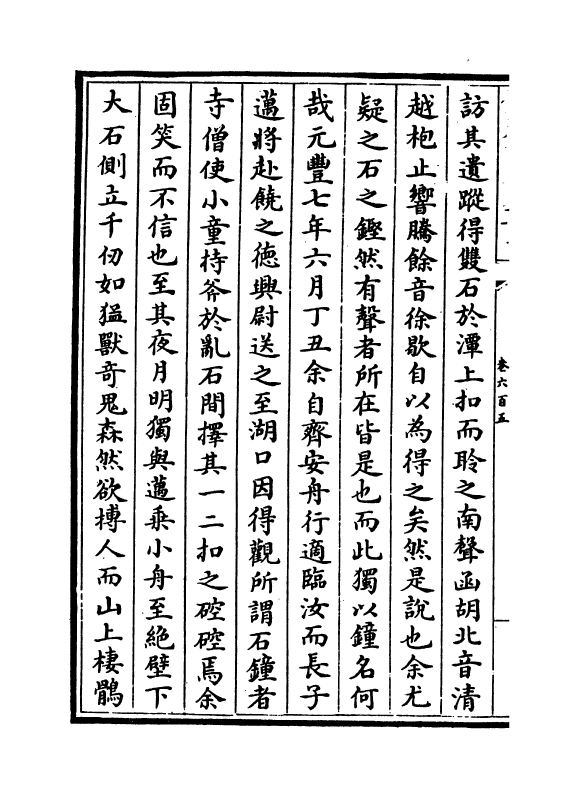 訪其遺蹤得雙石於潭上扣而聆之南聲函胡北音清
越枹止響騰餘音徐歇自以為得之矣然是說也余尤
疑之石之鏗然有聲者所在皆是也而此獨以鐘名何
哉元豐七年六月丁丑余自齊安舟行適臨汝而長子
邁將赴饒之德興尉送之至湖口因得觀所謂石鐘者
寺僧使小童持斧於亂石間擇其一二扣之硿硿焉余
固笑而不信也至其夜月明獨與邁乘小舟至絶壁下
大石側立千仞如猛獸奇鬼森然欲搏人而山上棲鶻
卷六百五